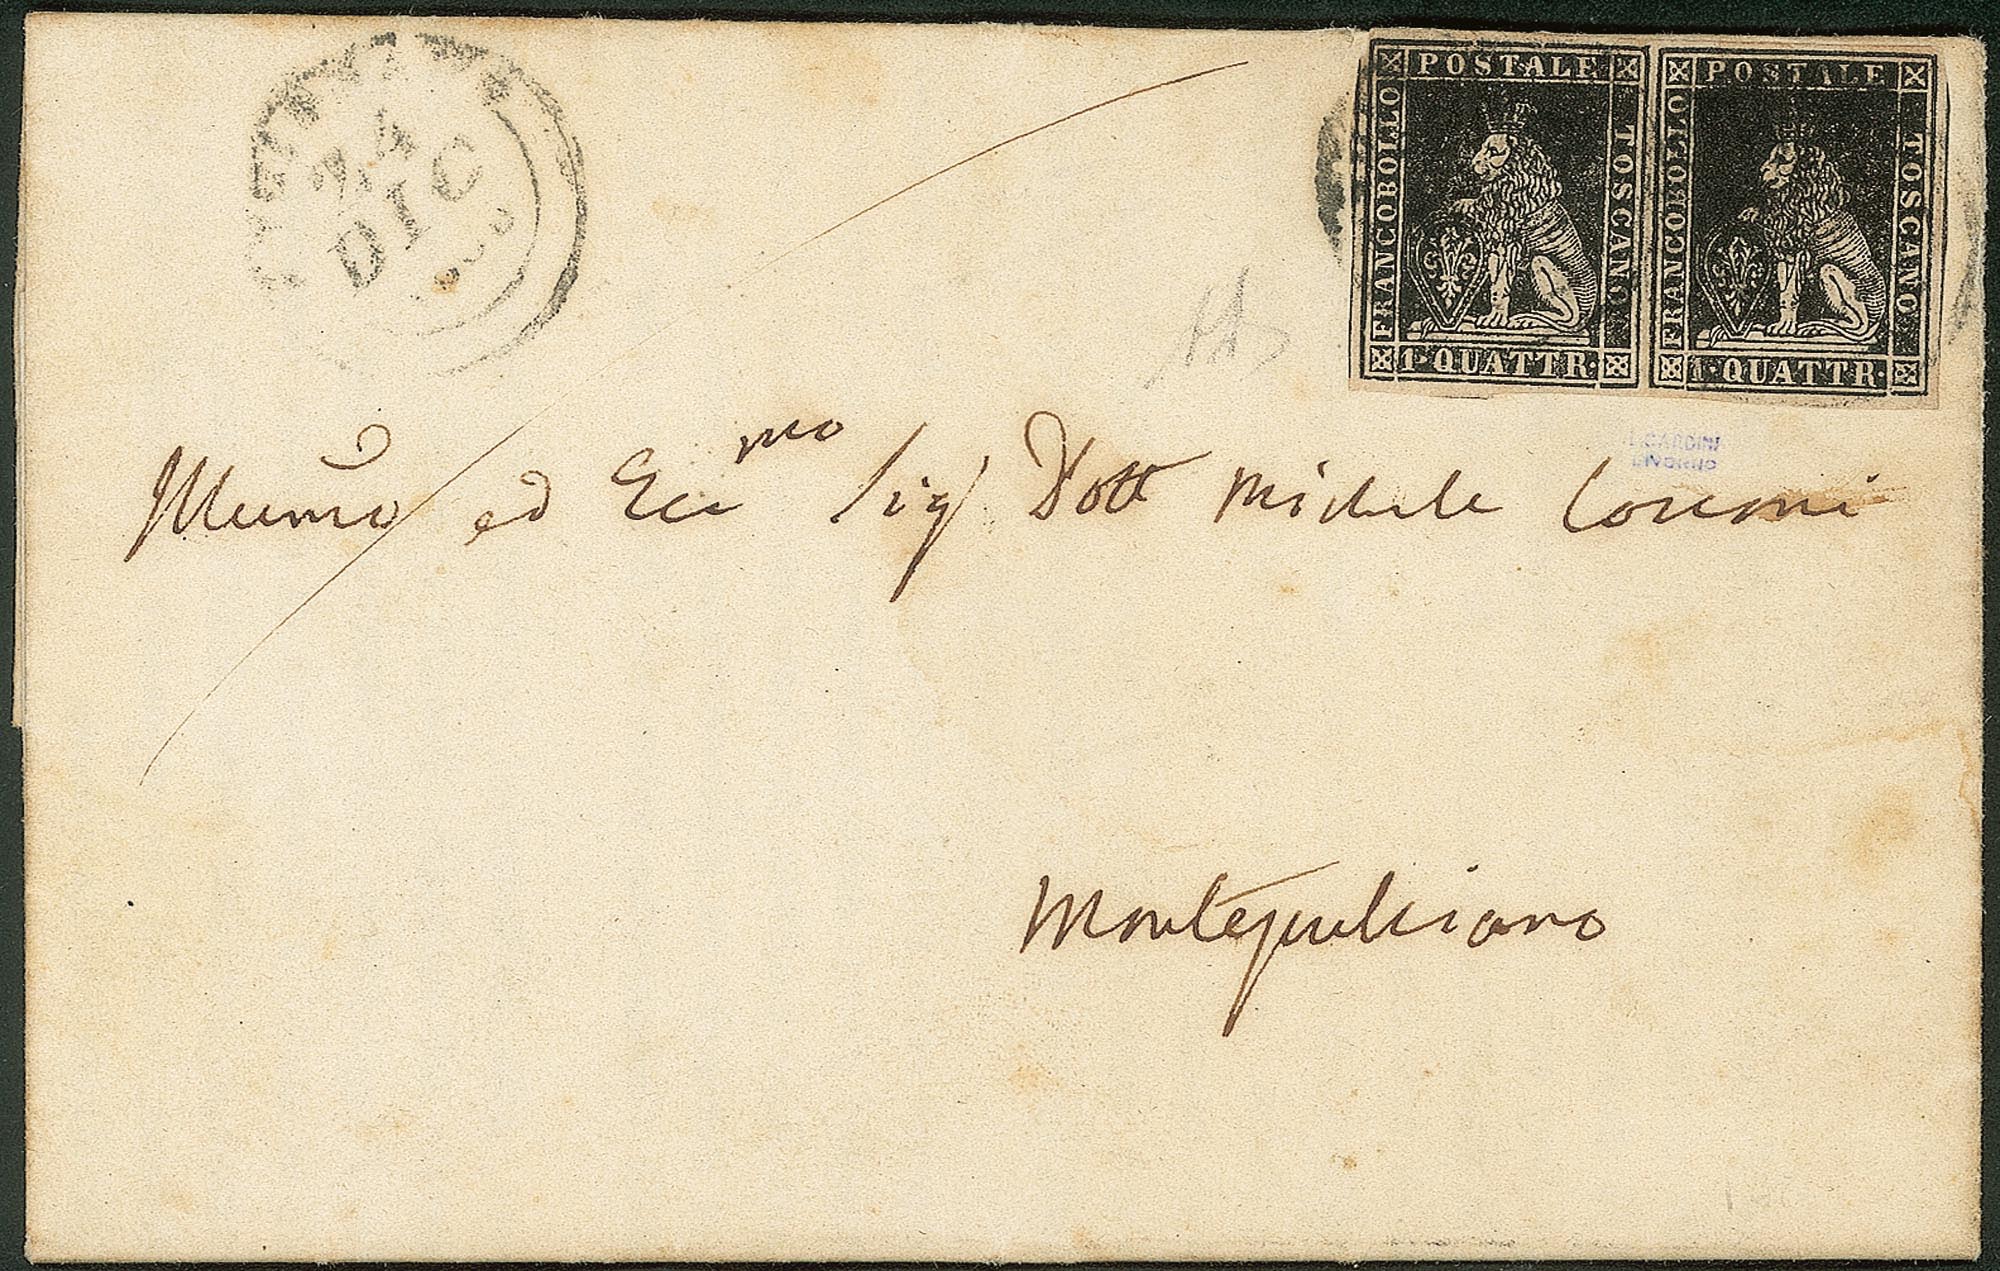 24
DIC
POSTALE
FRANCOBOLLO
TOSCANO
1·QUATTR·
POSTALE
FRANCOBOLLO
TOSCANO
1·QUATTR·
CARDINI
LIVORNO
ed Ecc mo Sig Dott Michele
Montepulciano